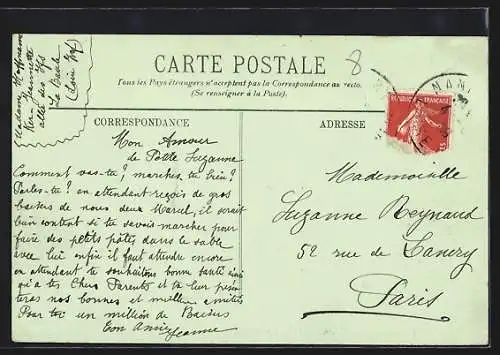 CARTE POSTALE
8
Tous les Pays étrangers n'acceptent pas la Correspondance au recto.
(Se renseigner à la Poste.)
Madame Hoffmann
Ker Jeannette
allée des Ifs
La Baule
(Loire Inf)
CORRESPONDANCE
Mon Amour
de Petite Suzanne
Comment vas-tu? marches tu bien?
Parles-tu? en attendant reçois de gros
baisers de nous deux Marcel, il serait
bien content si tu savais marcher pour
faire des petits pâtés dans le sable
avec lui enfin il faut attendre encore
en attendant te souhaitons bonne santé ainsi
qu'a tes Chers Parents et tu leur présen
teras nos bonnes et meilleures amitiés
Pour toi un million de Baisers
Ton Amie Jeanne
ADRESSE
NAN
REPUBLIQUE FRANÇAISE
Mademoiselle
Suzanne Reynaud
52 rue de Lancry
Paris